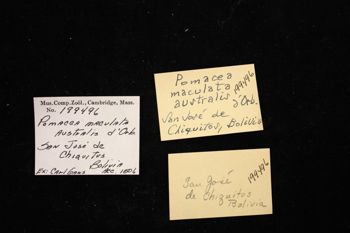 Mus. Comp. Zoöl., Cambridge, Mass.
No. 199496
Pomacea maculata
australis d'Orb
San José de
Chiquitos
Bolivia
Acc. 1806
Pomacea
maculata
australis d'Orb.
199496
San José de
Chiquitos, Bolivia
199496
San José
de Chiquitos
Bolivia